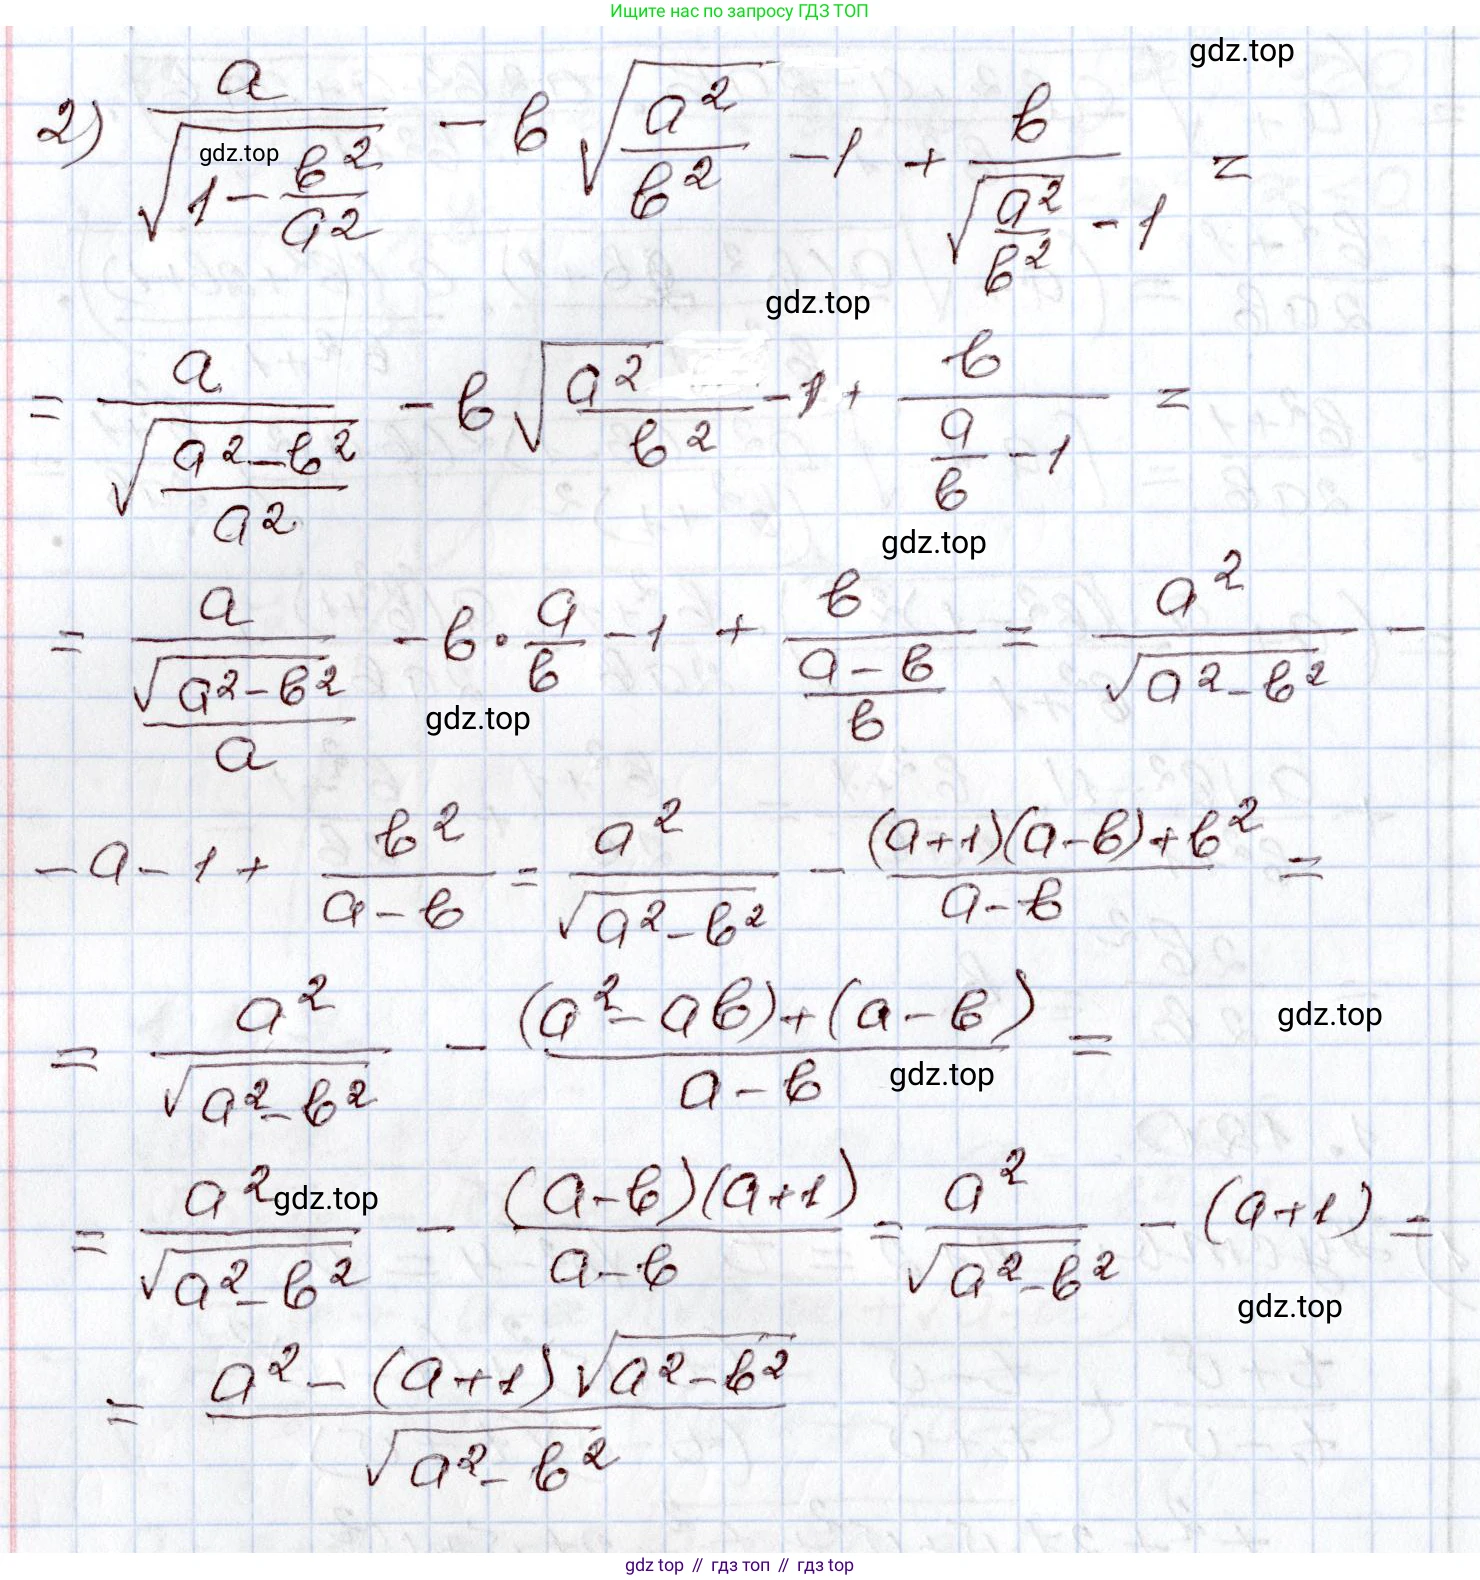 Ищите нас по запросу ГДЗ ТОП
gdz.top
2) a/√(1 - в²/a²) - в √(a²/в²) - 1 + в/(√(a²/в²) - 1) =
gdz.top
gdz.top
= a/√((a² - в²)/a²) - в √(a²/в²) - 1 + в/(a/в - 1) =
gdz.top
= a/(√(a² - в²)/a) - в · a/в - 1 + в/((a - в)/в) = a²/√(a² - в²) -
gdz.top
- a - 1 + в²/(a - в) = a²/√(a² - в²) - ((a+1)(a-в)+в²)/(a - в) =
= a²/√(a² - в²) - ((a² - aв)+(a - в))/(a - в) =
gdz.top
gdz.top
= a²/√(a² - в²) - ((a-в)(a+1))/(a - в) = a²/√(a² - в²) - (a+1) =
gdz.top
gdz.top
= (a² - (a+1)√(a² - в²))/√(a² - в²)
gdz.top // гдз топ // гдз top